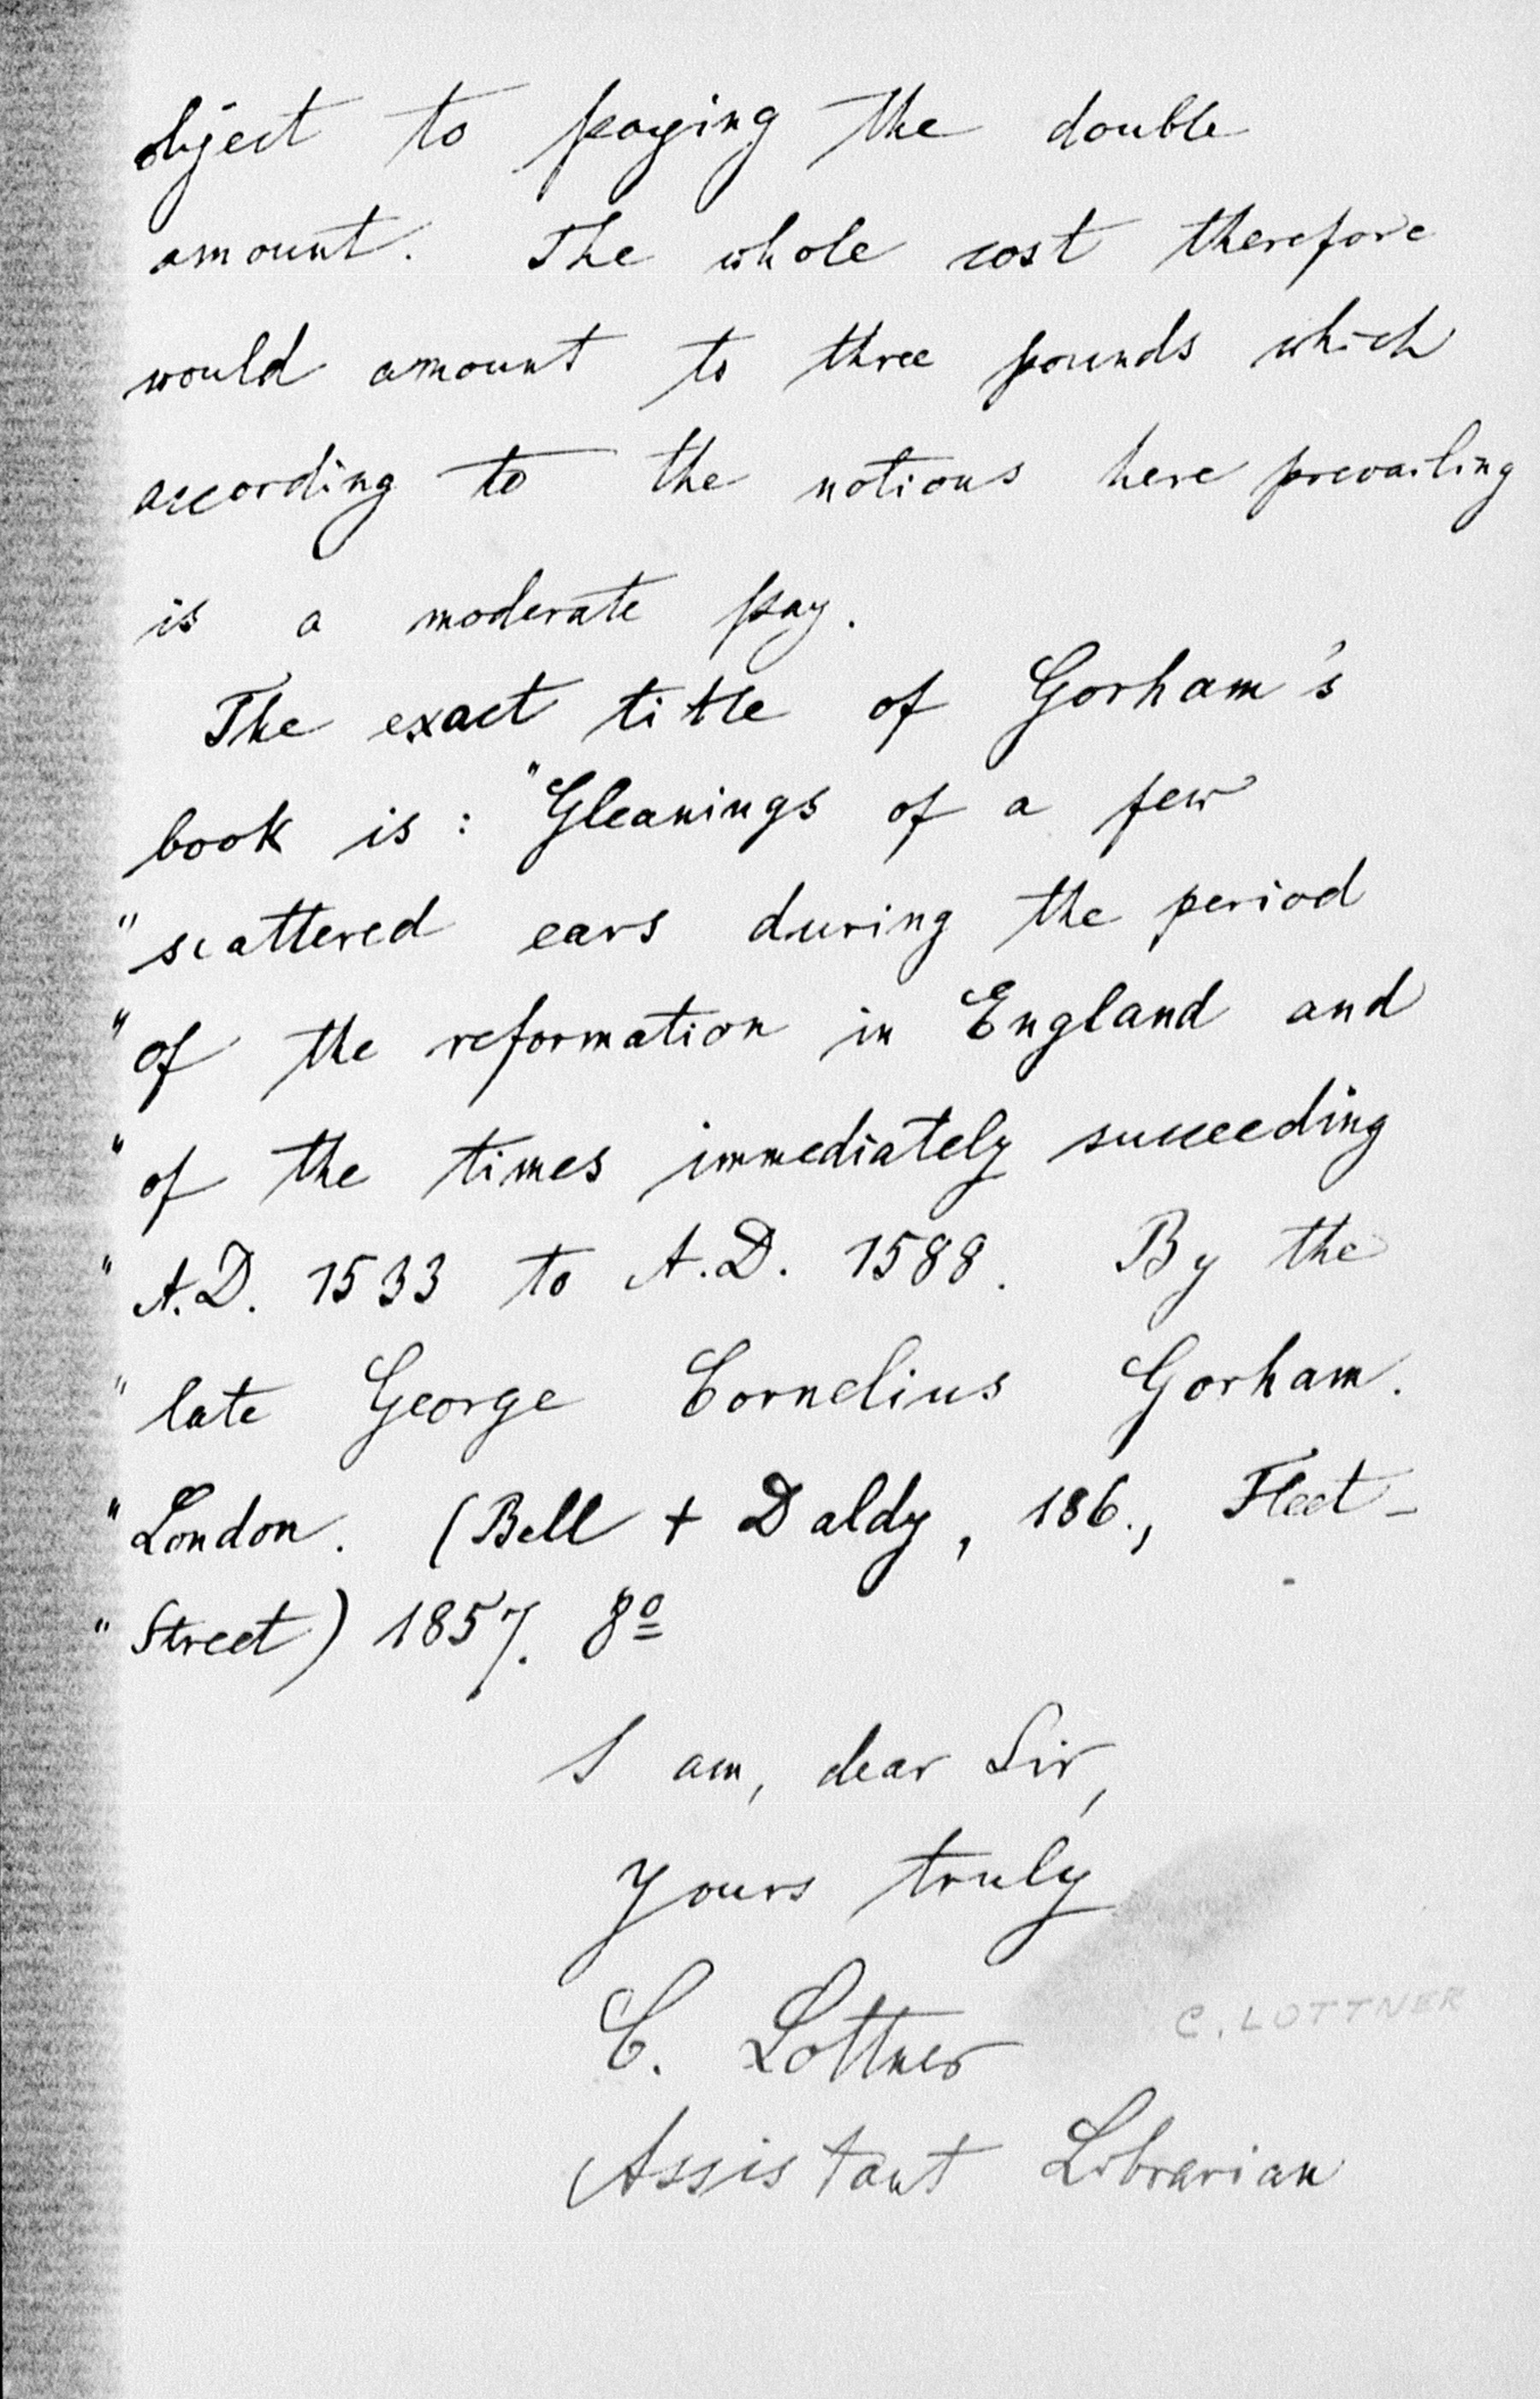 object to paying the double
amount. The whole cost therefore
would amount to three pounds which
according to the notions here prevailing
is a moderate pay.
The exact title of Gorham's
book is: "Gleanings of a few
"scattered ears during the period
"of the reformation in England and
"of the times immediately succeeding
"A.D. 1533 to A.D. 1588. By the
"late George Cornelius Gorham.
"London. (Bell + Daldy, 186., Fleet-
"Street) 1857. 8º
I am, dear Sir,
Yours truly
C. Lottner
C. LOTTNER
Assistant Librarian